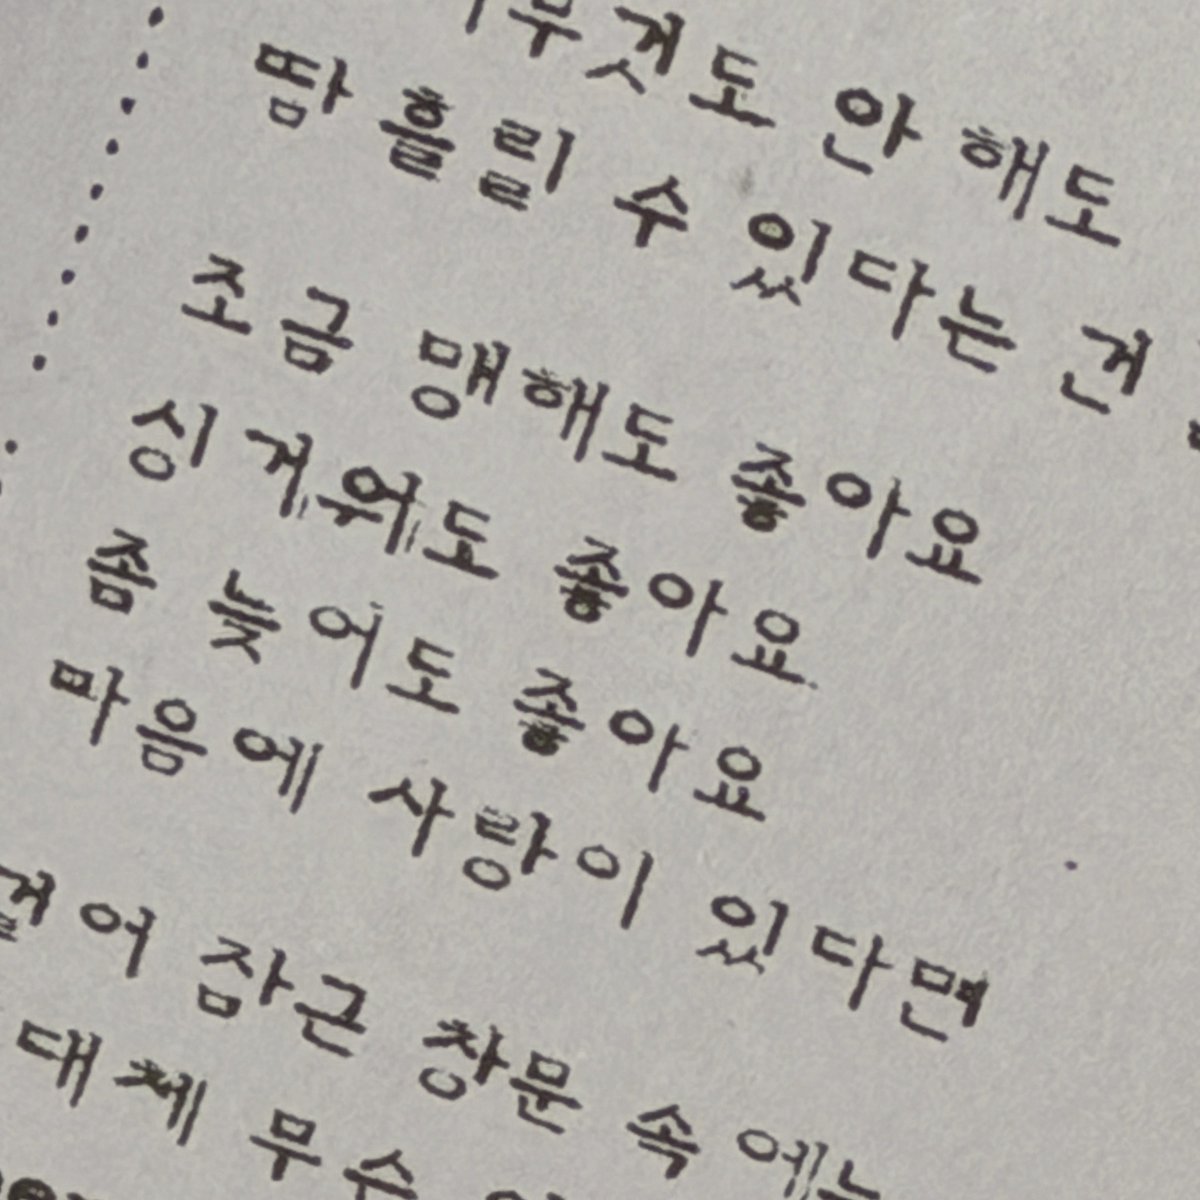 아무것도 안 해도
땀 흘릴 수 있다는 건
조금 맹해도 좋아요
싱거워도 좋아요
좀 늦어도 좋아요
마음에 사탕이 있다면
걸어 잠근 창문 속에는
대체 무슨